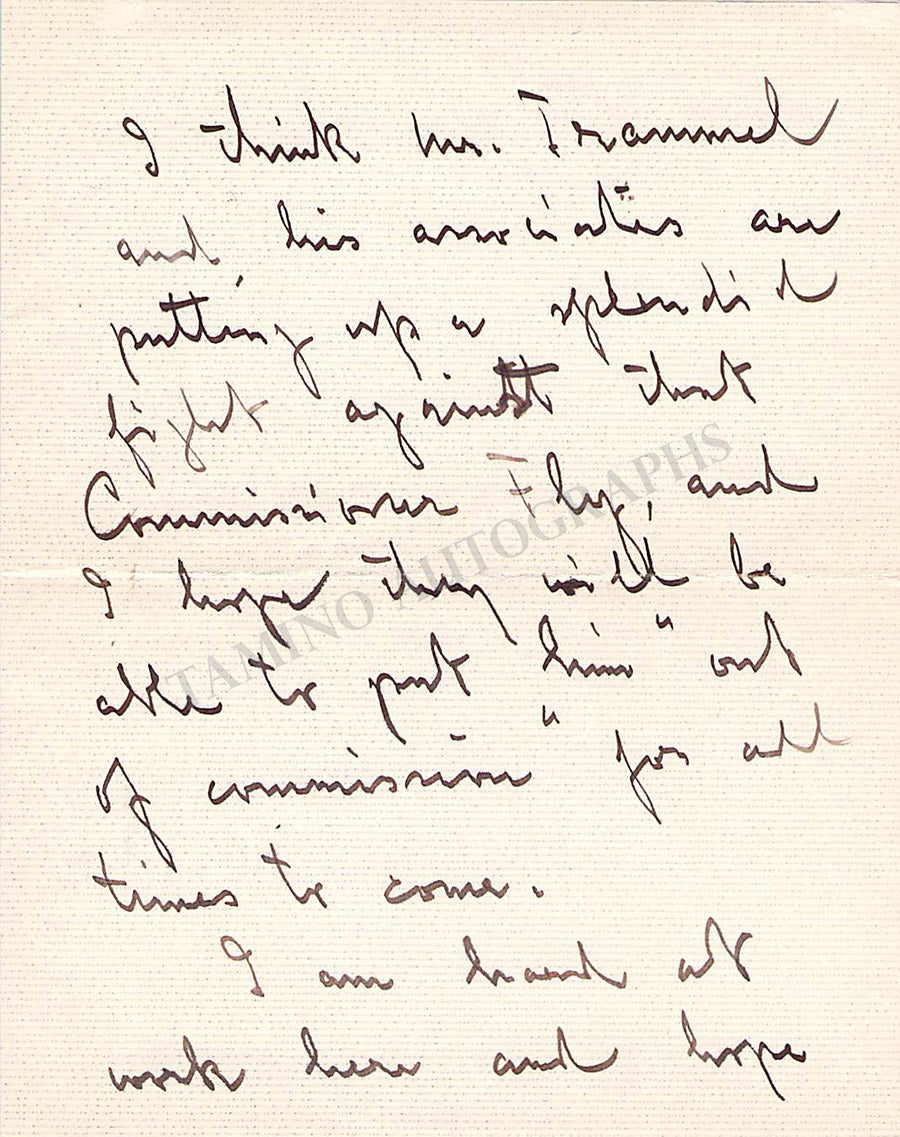 I think Mr. Trammel
and his associates are
putting up a splendid
fight against that
Commissioner Fly, and
I hope they will be
able to put him "out
of commission" for all
times to come.
I am hard at
work here and hope
TAMINO AUTOGRAPHS